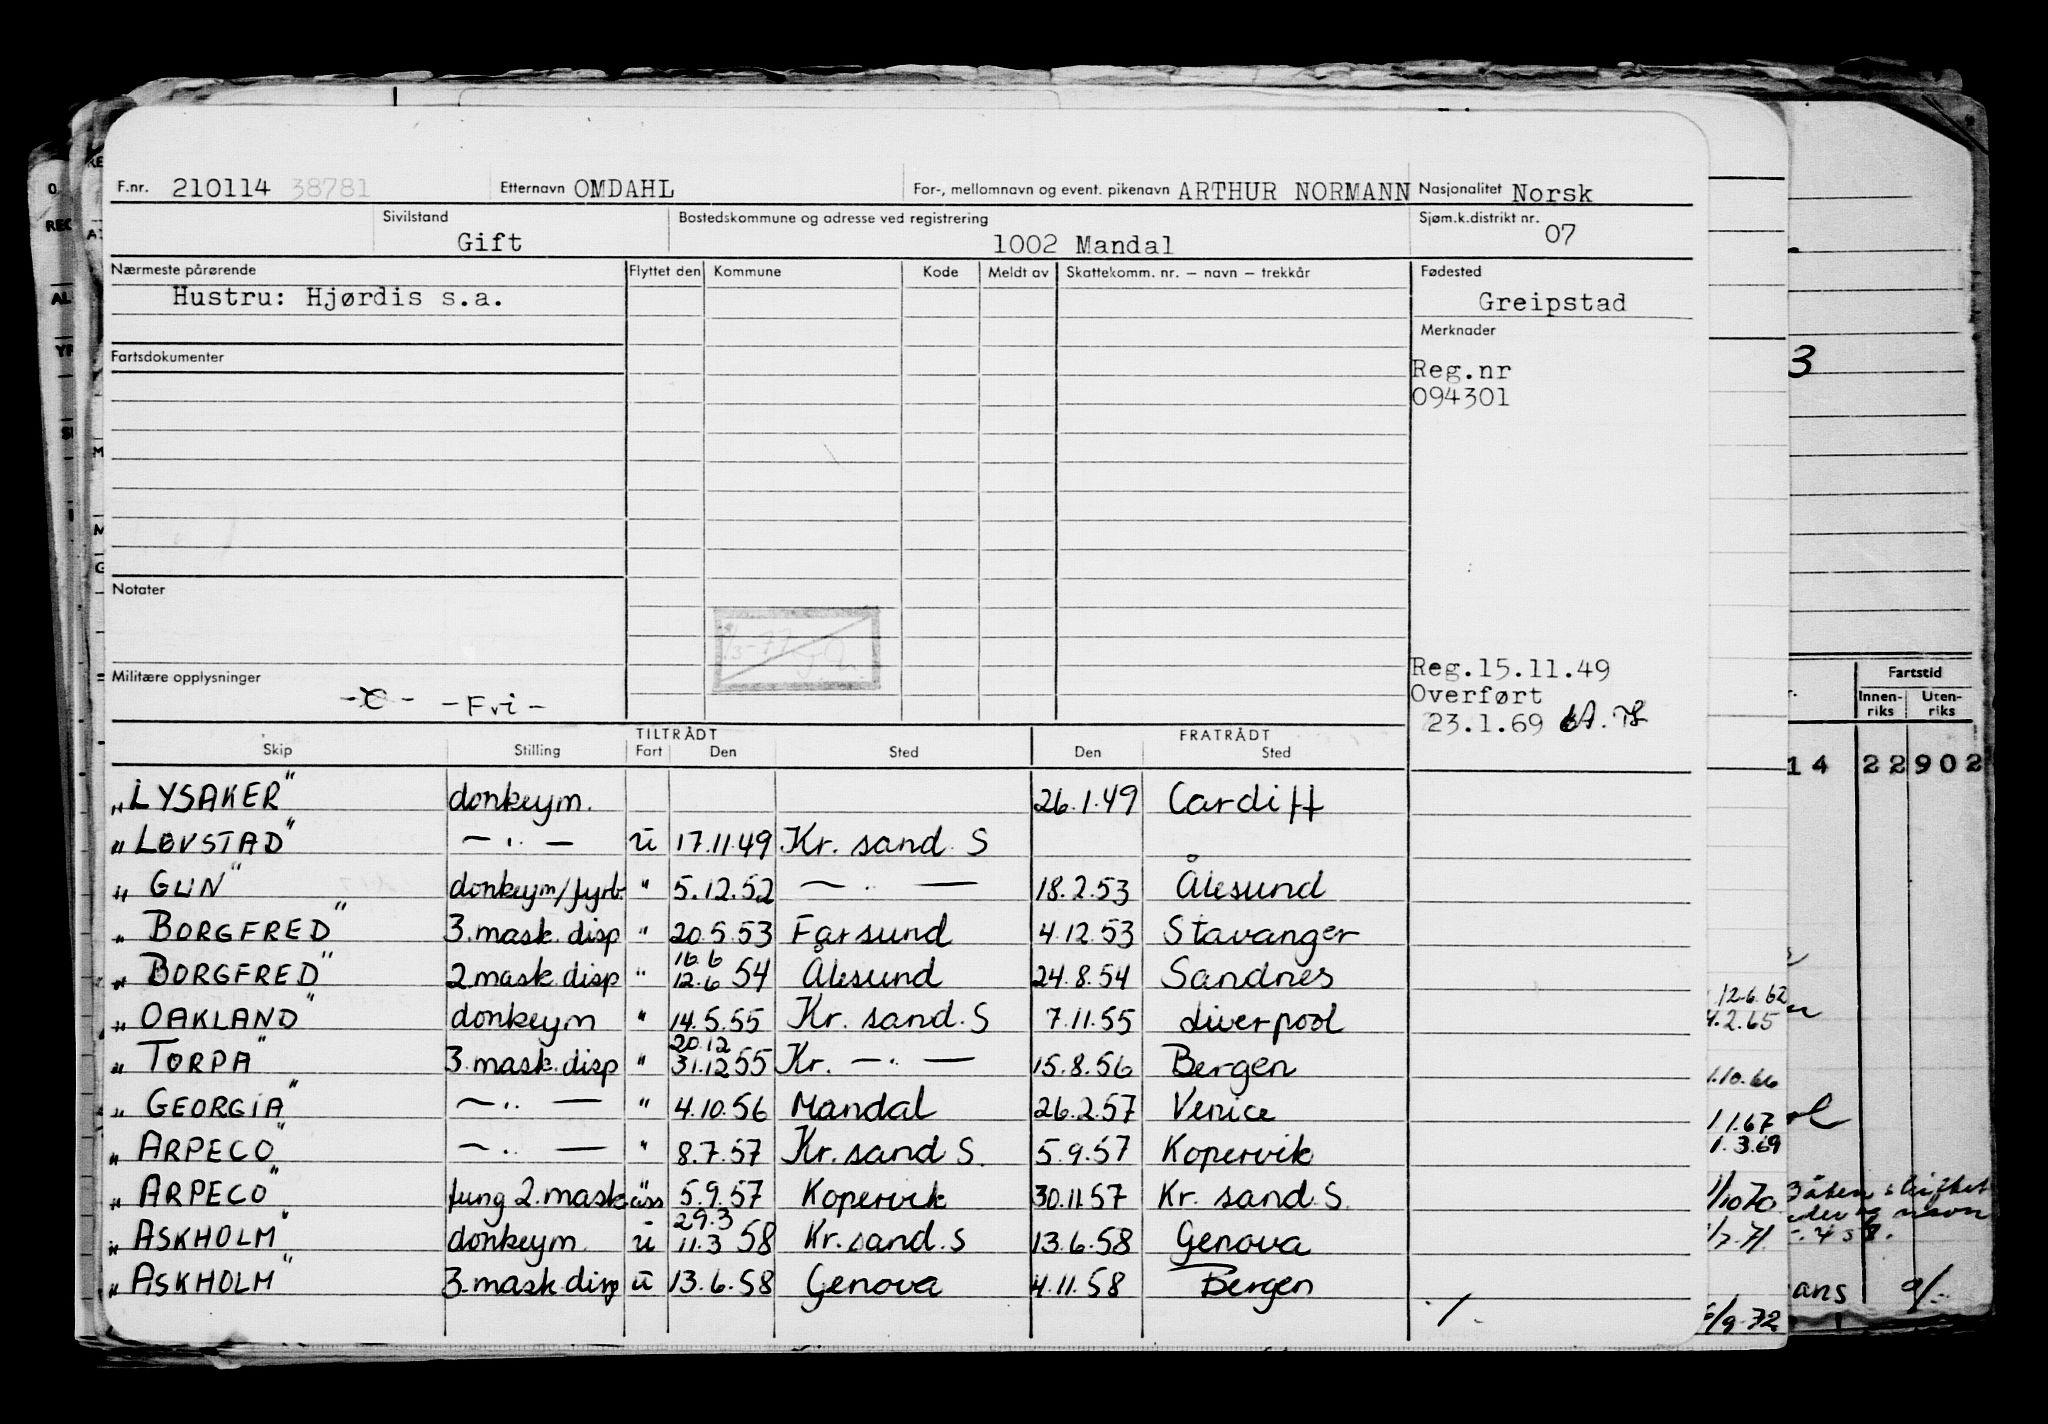 F.nr. 210114 38781 Etternavn OMDAHL For-, mellomnavn og event. pikenavn ARTHUR NORMANN Nasjonalitet Norsk
Sivilstand Gift Bostedskommune og adresse ved registrering 1002 Mandal Sjøm.k.distrikt nr. 07
Nærmeste pårørende Flyttet den Kommune Kode Meldt av Skattekomm. nr. – navn – trekkår Fødested
Hustru: Hjørdis s.a. Greipstad
Merknader
Fartsdokumenter
Reg.nr
094301
Notater
Reg.15.11.49
Militære opplysninger
Overført
- Fri -
23.1.69
TILTRÅDT FRATRÅDT
Skip Stilling Fart Den Sted Den Sted
"LYSAKER" donkeym. 26.1.49 Cardiff
"LØVSTAD" — " — u 17.11.49 Kr. sand. S
"GUN" donkeym/fyrb. " 5.12.52 — " — 18.2.53 Ålesund
"BORGFRED" 3. mask. disp " 20.5.53 Farsund 4.12.53 Stavanger
"BORGFRED" 2. mask. disp " 16.6 12.6 54 Ålesund 24.8.54 Sandnes
"OAKLAND" donkeym " 14.5.55 Kr. sand. S 7.11.55 Liverpool
"TORPA" 3. mask. disp " 20.12 31.12 55 Kr. — " — 15.8.56 Bergen
"GEORGIA" — " — " 4.10.56 Mandal 26.2.57 Venice
"ARPECO" — " — " 8.7.57 Kr. sand S. 5.9.57 Kopervik
"ARPECO" fung 2. mask. ass " 5.9.57 Kopervik 30.11.57 Kr. sand. S.
"ASKHOLM" donkeym. u 29.3 11.3 58 Kr. sand. S 13.6.58 Genova
"ASKHOLM" 3. mask. disp u 13.6.58 Genova 4.11.58 Bergen
3
Fartstid
Innen-riks Uten-riks
14 22 902
12.6.62
4.2.65
.10.66
1.67
1.3.69
/10 70
ans
/9-72